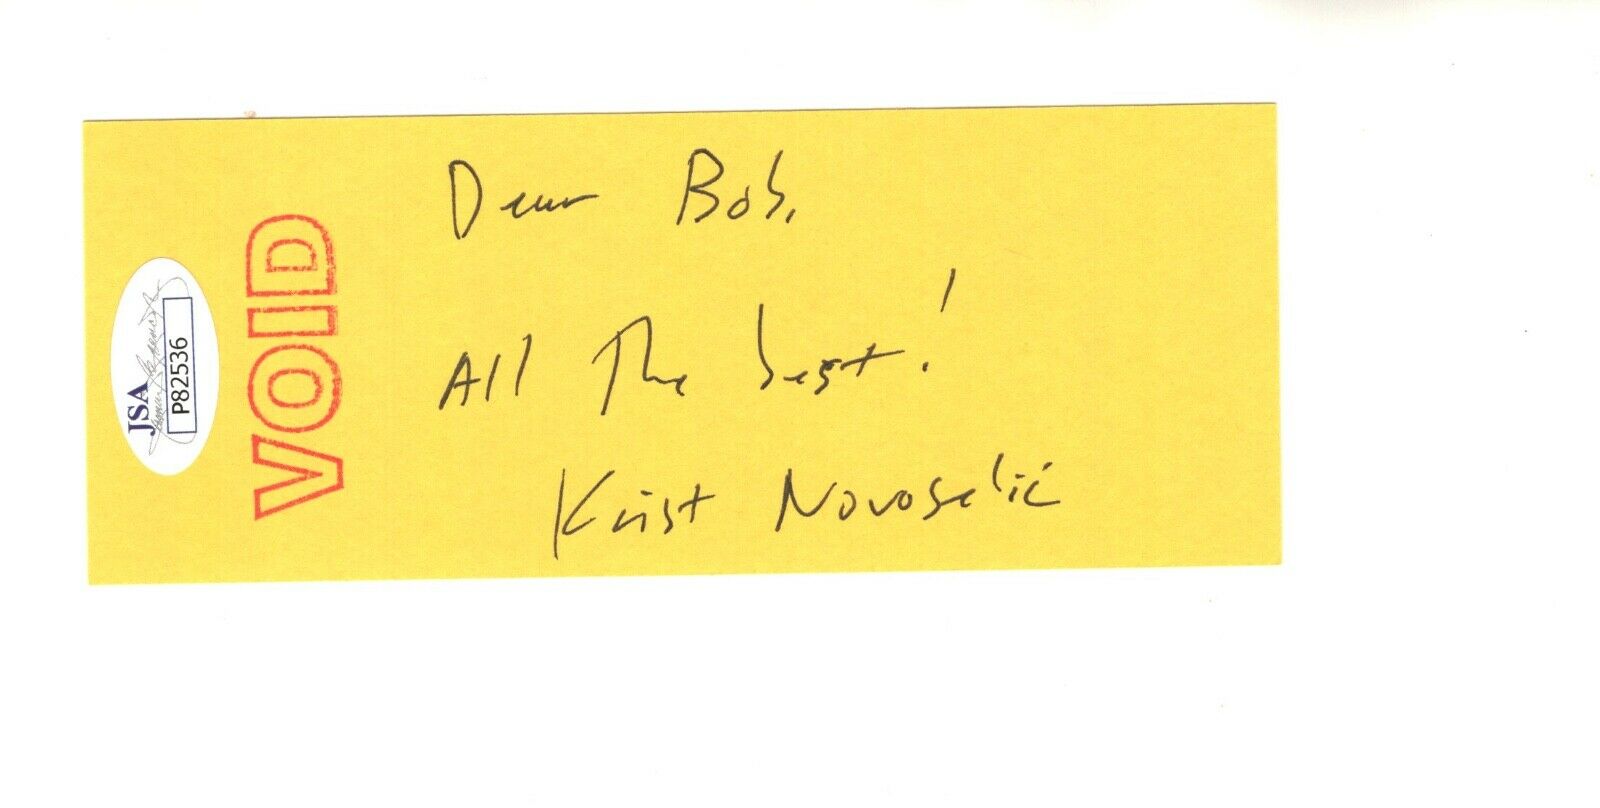 Dear Bob,
All The best!
Krist Novoselić
VOID
JSA
P82536